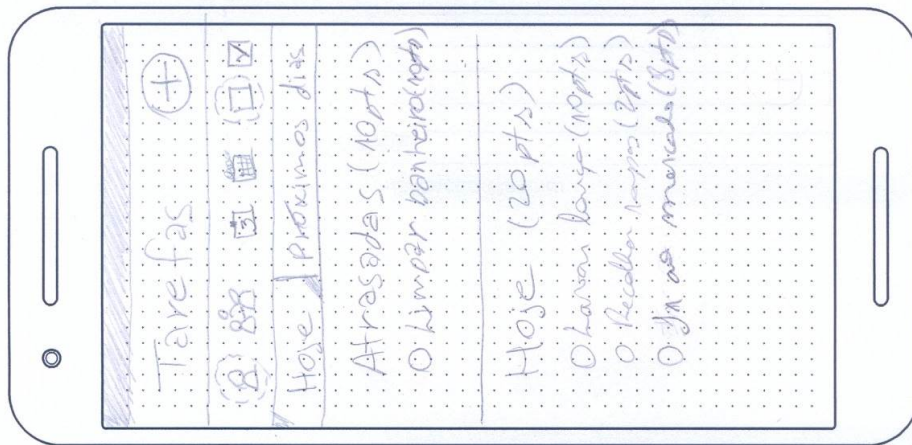 Tarefas +
Hoje Próximos dias
Atrasadas (10pts)
Limpar banheiro (10pts)
Hoje (20 pts)
Lavar louça (10pts)
Recolher roupas (2pts)
Ir ao mercado (8pts)